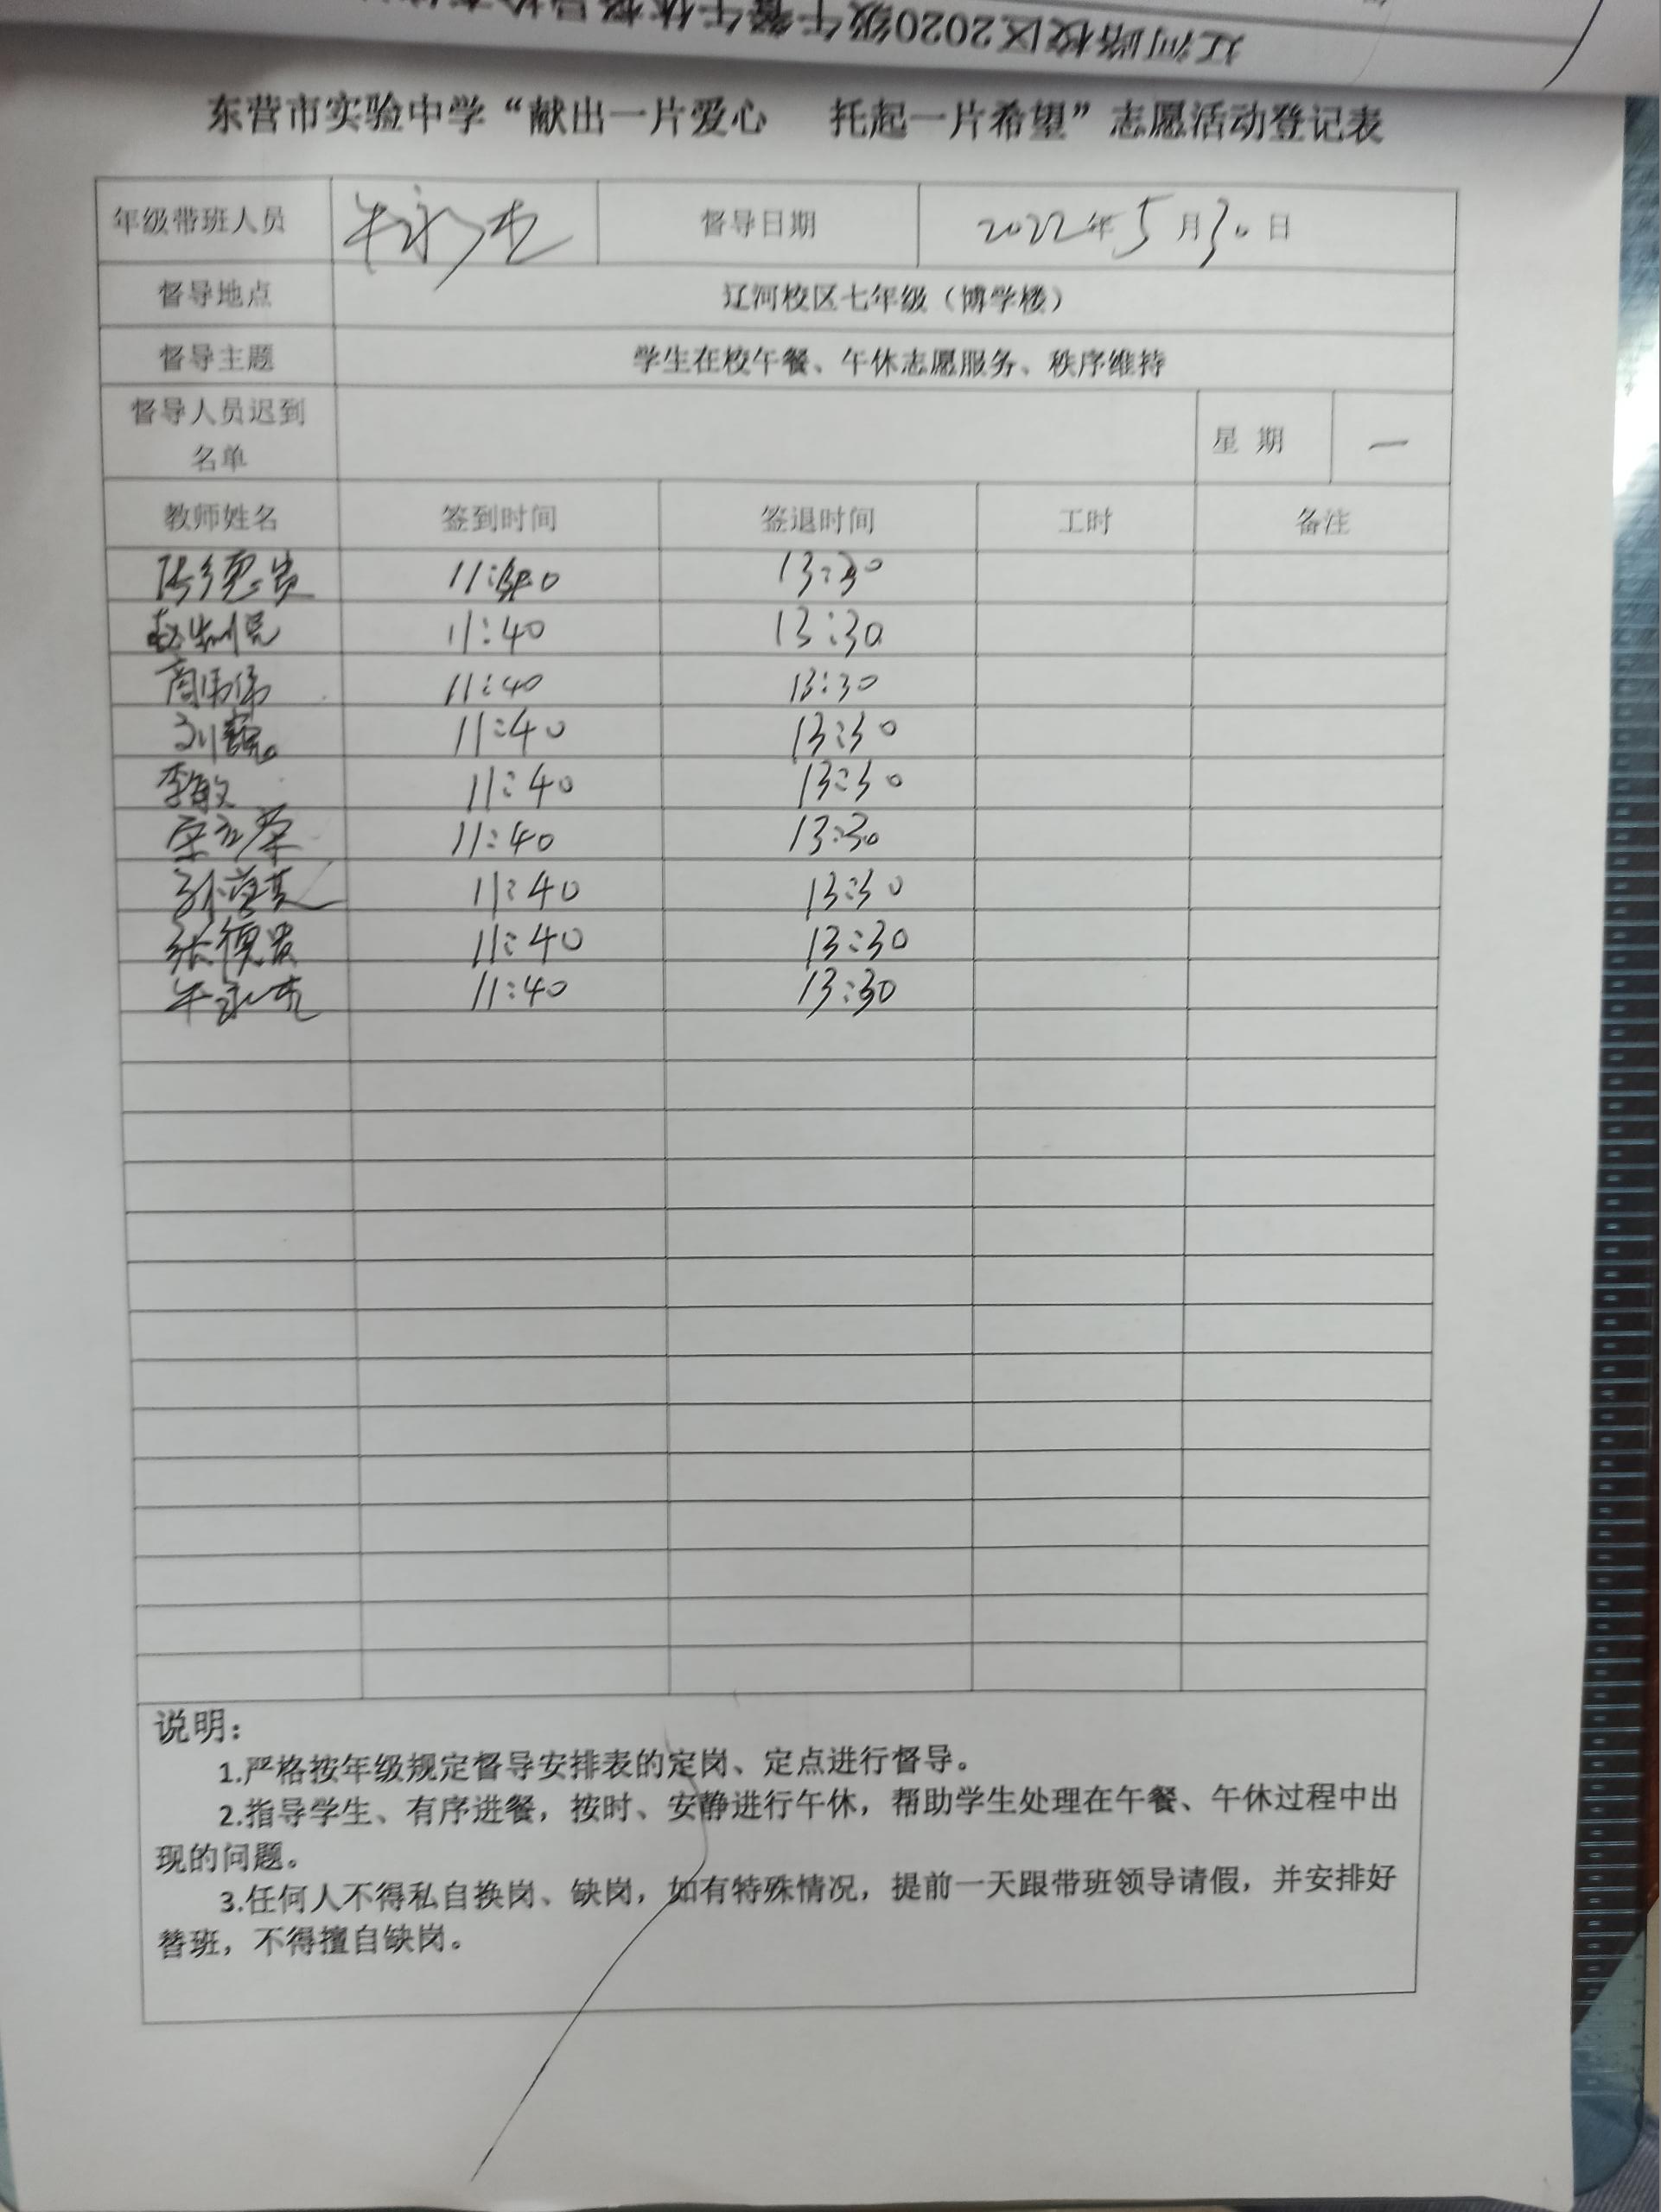 辽河路校区2020级午餐午休督导检查
东营市实验中学“献出一片爱心 托起一片希望”志愿活动登记表
年级带班人员 牛永杰 督导日期 2022年5月30日
督导地点 辽河校区七年级（博学楼）
督导主题 学生在校午餐、午休志愿服务、秩序维持
督导人员迟到
名单 星 期 一
教师姓名 签到时间 签退时间 工时 备注
13:30
11:40 13:30
11:40 13:30
刘 11:40 13:30
李敏 11:40 13:30
11:40 13:30
11:40 13:30
张德贵 11:40 13:30
牛永杰 11:40 13:30
说明：
1.严格按年级规定督导安排表的定岗、定点进行督导。
2.指导学生、有序进餐，按时、安静进行午休，帮助学生处理在午餐、午休过程中出
现的问题。
3.任何人不得私自换岗、缺岗，如有特殊情况，提前一天跟带班领导请假，并安排好
替班，不得擅自缺岗。